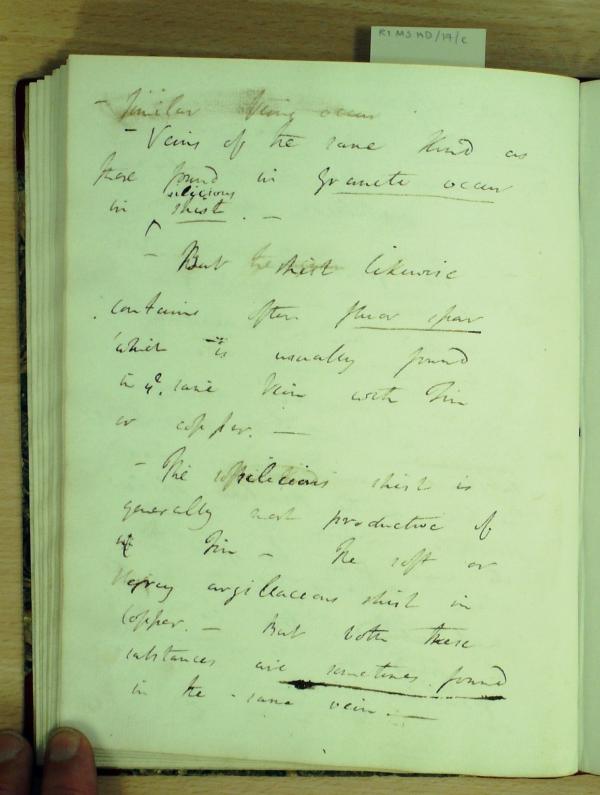 RI MS HD/14/c
- Similar Veins occur
- Veins of the same kind as
those found in granite occur
siliceous
in shist. -
- But the shist likewise
contains often fluor spar
which is usually found
in ye. same Vein with Tin
or copper. -
- The siliceous shist is
generally most productive of
Tin - The soft or
argillaceous shist in
Copper. - But both these
substances are sometimes found
in the same vein. -